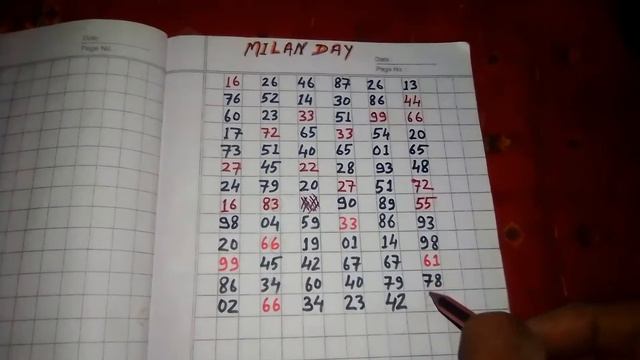 Date
Page No.
MILAN DAY
Date
Page No.
16 26 46 87 26 13
76 52 14 30 86 44
60 23 33 51 99 66
17 72 65 33 54 20
73 51 40 65 01 65
27 45 22 28 93 48
24 79 20 27 51 72
16 83 90 89 55
98 04 59 33 86 93
20 66 19 01 14 98
99 45 42 67 67 61
86 34 60 40 79 78
02 66 34 23 42